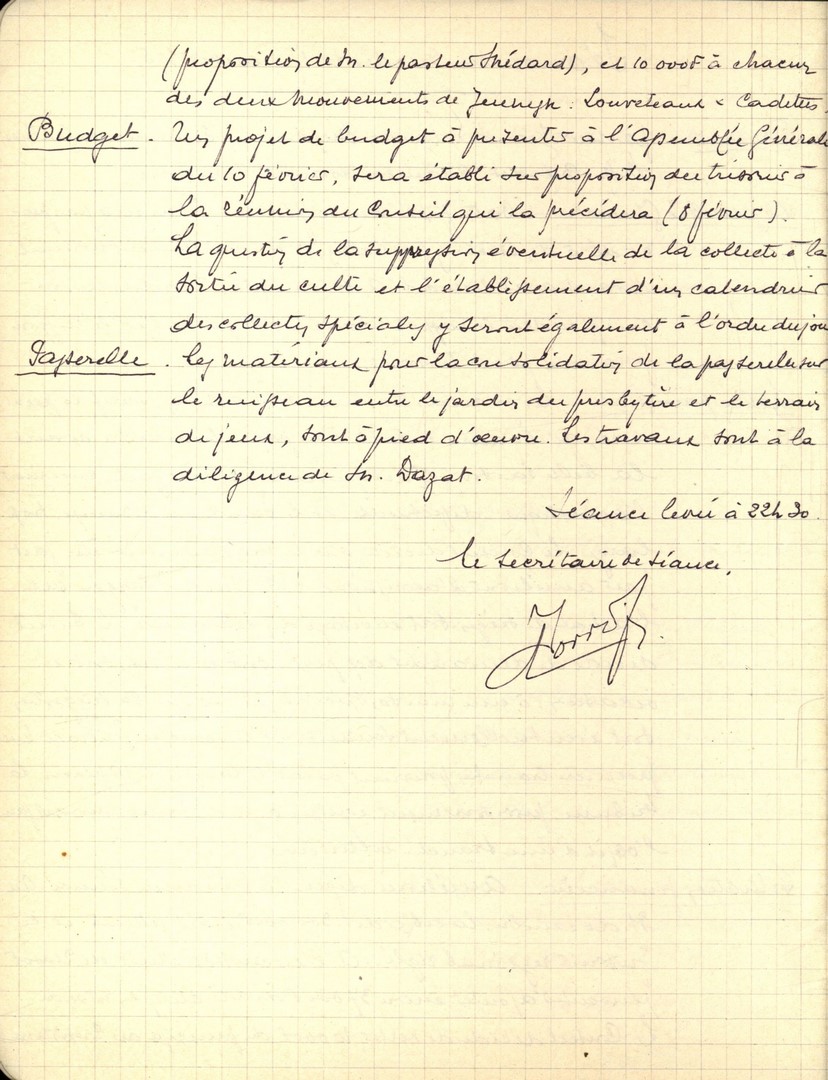 (proposition de M. le pasteur Thédard), et 10 000F à chacun
des deux mouvements de Jeunesse : Louveteaux & Cadettes.
Budget. Un projet de budget à présenter à l'Assemblée Générale
du 10 février, sera établi sur proposition du trésorier à
la réunion du Conseil qui la précédera (8 février).
La question de la suppression éventuelle de la collecte à la
sortie du culte et l'établissement d'un calendrier
des collectes spéciales y seront également à l'ordre du jour
Passerelle. Les matériaux pour la consolidation de la passerelle sur
le ruisseau entre le jardin du presbytère et le terrain
de jeux, sont à pied d'œuvre. Les travaux sont à la
diligence de M. Dazat.
Séance levée à 22h30.
Le secrétaire de séance,